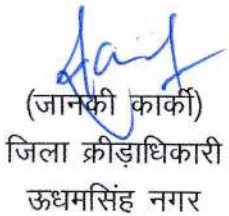 (जानकी कार्की)
जिला क्रीड़ाधिकारी
ऊधमसिंह नगर